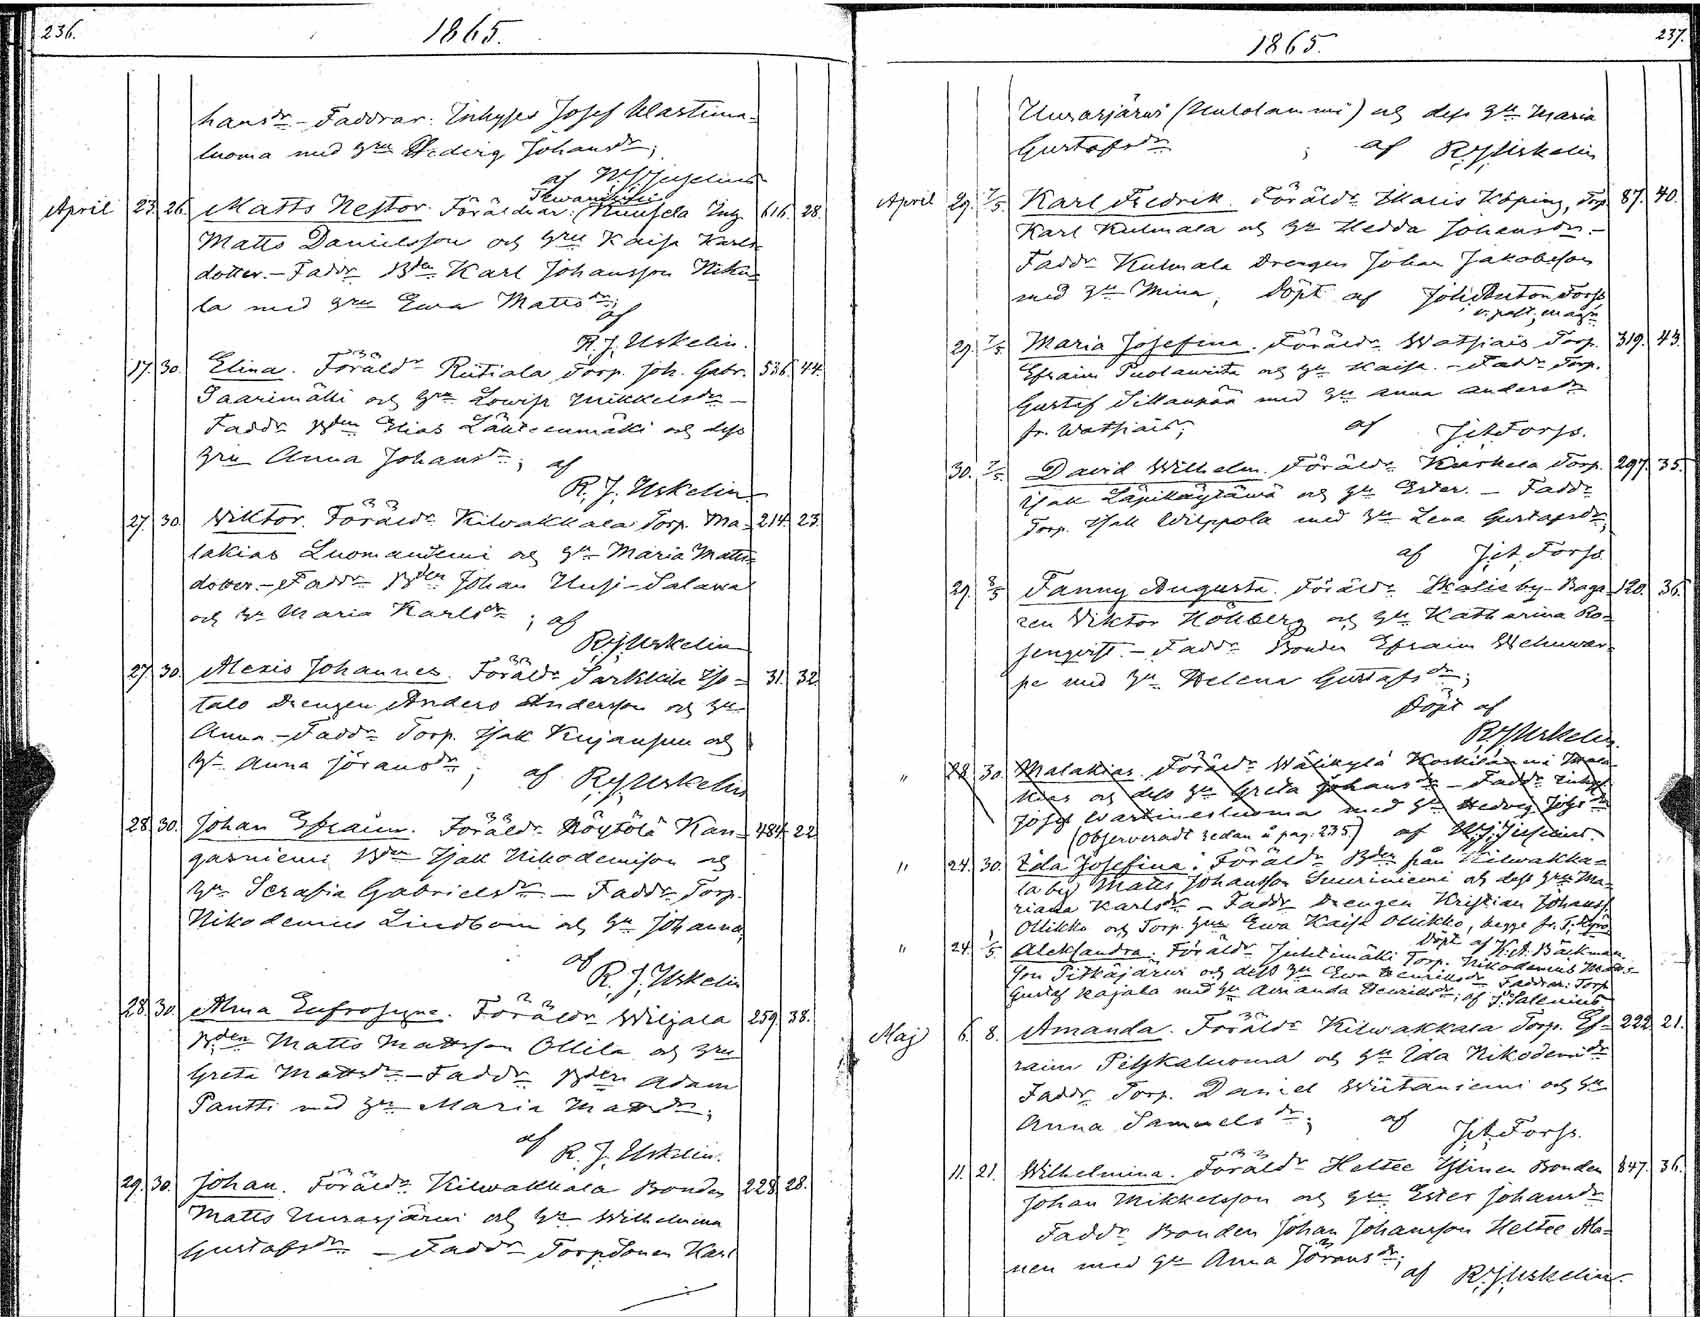 236.
1865.
hansdr – Faddrar: Inhyses Josef Wartima-
luoma med Hru Hedvig Johansdr;
af
April 23. 26. Matts Nestor. Föräldrar: Ing. 616. 28.
Matts Danielsson och Hru Kaisa Karls-
dotter. – Faddr Bden Karl Johansson Niku-
la med Hru Ewa Mattsdr;
af
R. J. Urkelin.
17. 30. Elina. Föräldr Riitiala Torp. Joh. Gabr. 536. 44.
Saarimäki och Hru Lowisa Mikkelsdr –
Faddr Bden Elias Lähteenmäki och dess
Hru Anna Johansdr; af
R. J. Urkelin
27. 30. Wiktor. Föräldr Kilwakkala Torp. Ma- 214. 23.
lakias Luomaniemi och Hu Maria Matts-
dotter. – Faddr Bden Johan Uusi-Salawa
och Hu Maria Karlsdr; af
R. J. Urkelin
27. 30. Alexis Johannes. Föräldr Särkkilä Iso- 31. 32.
talo Drengen Anders Andersson och Hu
Anna. – Faddr Torp. Isak Kujanpuu och
Hu Anna Jöransdr; af R. J. Urkelin
28. 30. Johan Efraim. Föräldr Röytölä Kan- 484. 22
gasniemi Bden Isak Nikodemisson och
Hu Serafia Gabrielsdr – Faddr Torp.
Nikodemus Lindbom och Hu Johanna;
af
R. J. Urkelin
28. 30. Alma Eufrosyne. Föräldr Wiljala 259. 38.
Bden Matts Mattsson Ollila och Hru
Greta Mattsdr – Faddr Bden Adam
Pantti med Hu Maria Mattsdr;
af R. J. Urkelin.
29. 30. Johan. Föräldr Kilwakkala Bonden 228. 28.
Matts Uurasjärwi och Hu Wilhelmina
Gustafsdr – Faddr Torp.sonen Karl
237.
1865.
Uurasjärwi (Uutolammi) och dess Hu Maria
Gustafsdr; af R. J. Urkelin
April 29. 7/5. Karl Fredrik. Föräldr Ikalis Köping, Torp. 87. 40.
Karl Kulmala och Hu Hedda Johansdr. –
Faddr Kulmala Drengen Johan Jakobsson
med Hu Mina, Döpt af Joh. Anton Forss,
v. past., mag.
29. 7/5. Maria Josefina. Föräldr Watsiais Torp. 319. 43.
Efraim Puolamita och Hu Kaisa. – Faddr Torp.
Gustaf Sillanpää med Hu Anna Andersdr
fr. Watsiais; af J. A. Forss.
30. 7/5. David Wilhelm. Föräldr Kurkela Torp. 297. 35.
Isak Läpikäytäwä och Hu Ester. – Faddr
Torp. Isak Wilppola med Hu Lena Gustafsdr;
af J. A. Forss
29. 8/5 Fanny Augusta. Föräldr Ikalis by Baga- 120. 36.
ren Wiktor Hökberg och Hu Katharina Ro-
senqvist. – Faddr Bonden Efraim Wehuwar-
pe med Hu Helena Gustafsdr;
Döpt af
R. J. Urkelin.
" 28. 30. Malakias. Föräldr Wälikylä Koskilammi Mala-
kias och dess Hu Greta Johansdr – Faddr
Josef Wartimesluoma med Hu Hedvig Johsdr
(Observeradt redan å pag. 235.) af
" 24. 30. Ida Josefina. Föräldr Bden från Kilwakka-
la by Matts Johansson Suuriniemi och dess Hru Ma-
riana Karlsdr – Faddr Drengen Kristian Johanss.
Ollikko och Torp. Hru Ewa Kaisa Ollikko, begge fr. T. Kyro
Döpt af K. A. Bäckman.
" 24. 1/5 Aleksandra. Föräldr Juhtimäki Torp. Nikodemus Matts-
son Pitkäjärwi och dess Hu Ewa Henriksdr Faddrar: Torp.
Gustaf Kajala med Hu Amanda Henriksdr; af J. Salenius
Maj 6. 8. Amanda. Föräldr Kilwakkala Torp. Ef- 222. 21.
raim Pitkäluoma och Hu Ida Nikodemidr
Faddr Torp. Daniel Wiitaniemi och Hu
Anna Samuelsdr; af J. A. Forss.
11. 21. Wilhelmina. Föräldr Heltee Ylinen Bonden 847. 36.
Johan Mikkelsson och Hu Ester Johansdr
Faddr Bonden Johan Johansson Heltee Ala-
nen med Hu Anna Jöransdr; af R. J. Urkelin.